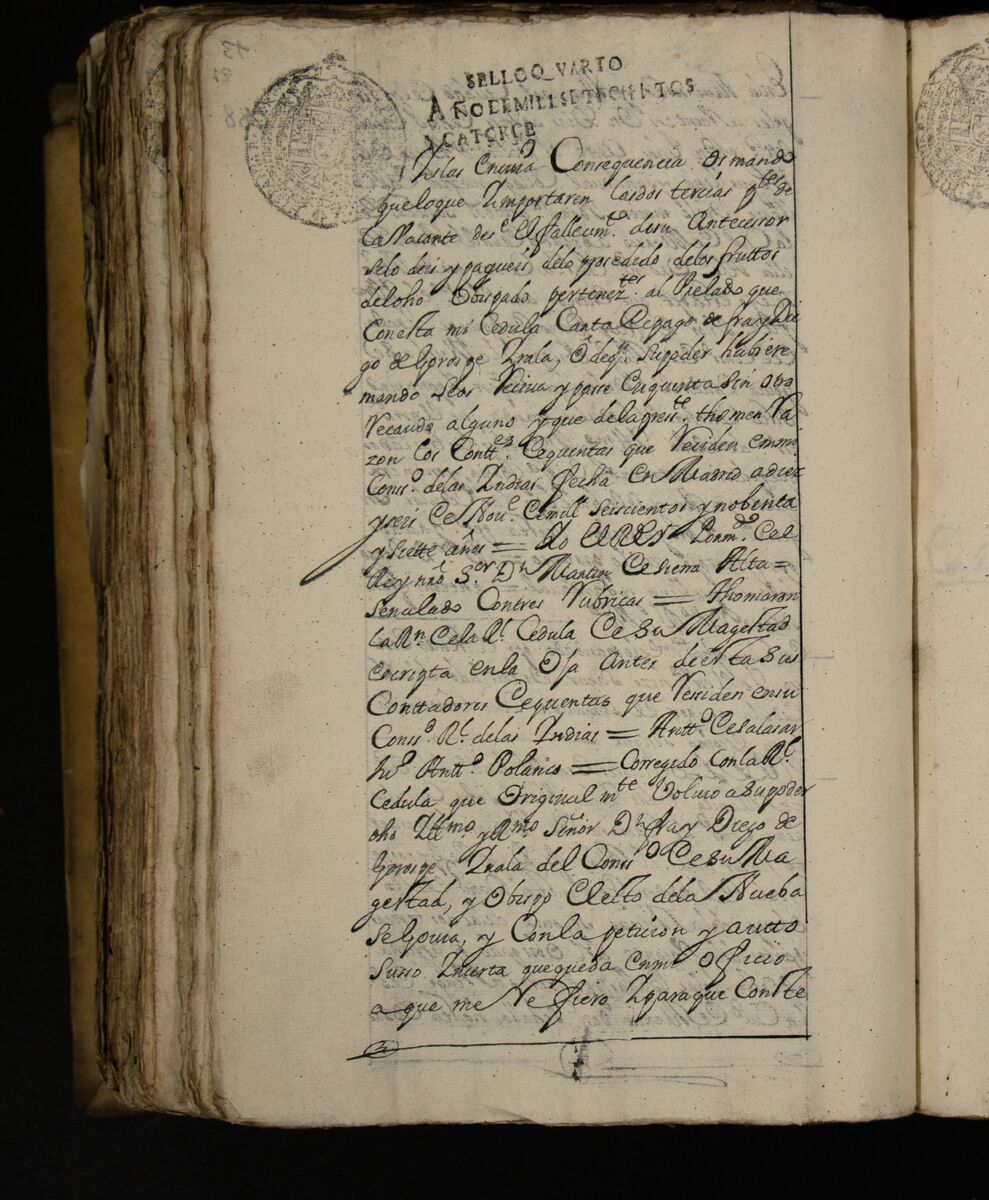 SELLO QVARTO
AÑO DE MIL SETECIENTOS
Y CATORCE
Yslas En cuia Consequencia os mando
que lo que Ymportaren las dos tercias p.tes de
la Vacante des.e el fallecim.to de su Antecessor
se lo deis y pagueis de lo prosedido de los fruttos
de dho Obispado pertenez.tes al Prelado que
Con esta mi Cedula Carta de pago de fray Die
go de Gorospe Yrala, ó de q.n su poder hubiere
mando se os Reciva y passe en quenta sin otro
Recaudo alguno y que de la pres.te thomen Ra
zon los Contt.es de quentas que Reciden en mi
Cons.o de las Yndias fecha en Madrid a diez
y seis de Nou.e de mill seiscientos y nobenta
y siette años = Yo El REY Por m.do del
Rey nrõ S.or D.n Martin de Sierra Alta =
señalado Con tres Rubricas = Thomaran
la R.n de la R.l Cedula de Su Magestad
escripta en la Oja antes de esta sus
Conttadores de quentas que Ressiden en su
Cons.o R.l de las Yndias = Antt.o de Salasar
Ju.o Antt.o Polanco = Corregido con la R.l
Cedula que Original m.te Volvio a su poder
dho Yll.mo y R.mo Señor D.n fray Diego de
Gorospe Yrala del Cons.o de Su Ma
gestad, y Obispo Electo de la Nueba
Segovia, y Con la peticion y autto
Susso Ynserta que queda en mi Oficio
a que me Refiero Y para que Conste